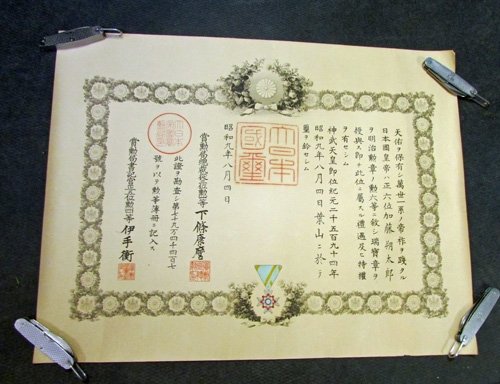 天佑ヲ保有シ萬世一系ノ帝祚ヲ踐タル
日本國皇帝ハ正六位加藤朔太郎
ヲ明治勲章ノ勲六等ニ敍シ瑞寶章ヲ
授與ス即チ此位ニ属スル禮遇及ヒ特權
ヲ有セシム
神武天皇即位紀元二千五百九十四年
昭和九年八月四日葉山ニ於テ
璽ヲ鈐セシム
大日本國璽
昭和九年八月四日
賞勲局總裁從 勲 等下條康麿
此證ヲ勘査シ第七十九万四千四百七
號ヲ以テ勲等簿冊ニ記入ス
賞勲局書記官正五位勲四等伊手衡